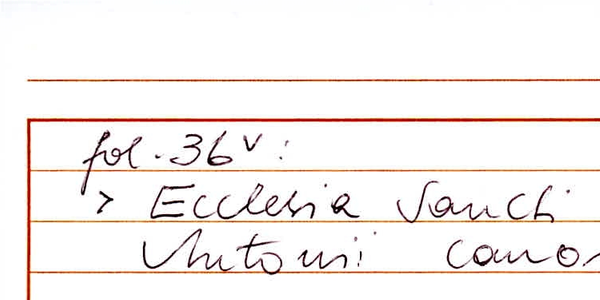 fol. 36v:
> Ecclesia Sancti
Antonii